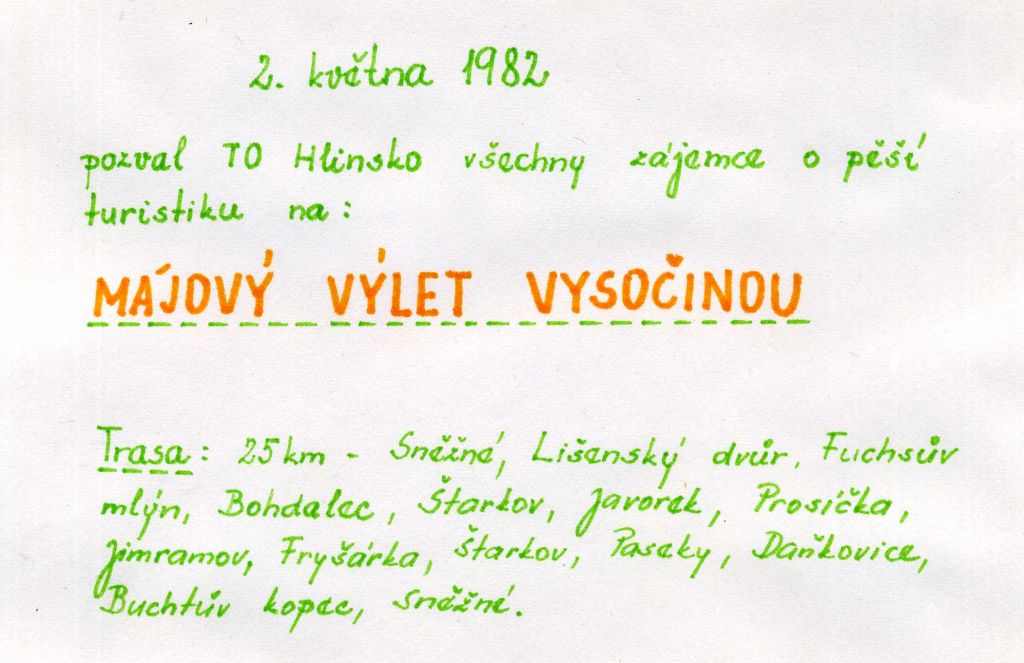 2. května 1982
pozval TO Hlinsko všechny zájemce o pěší
turistiku na:
MÁJOVÝ VÝLET VYSOČINOU
Trasa: 25km - Sněžné, Lišenský dvůr, Fuchsův
mlýn, Bohdalec, Štarkov, Javorek, Prosíčka,
Jimramov, Fryšárka, Štarkov, Paseky, Daňkovice,
Buchtův kopec, Sněžné.